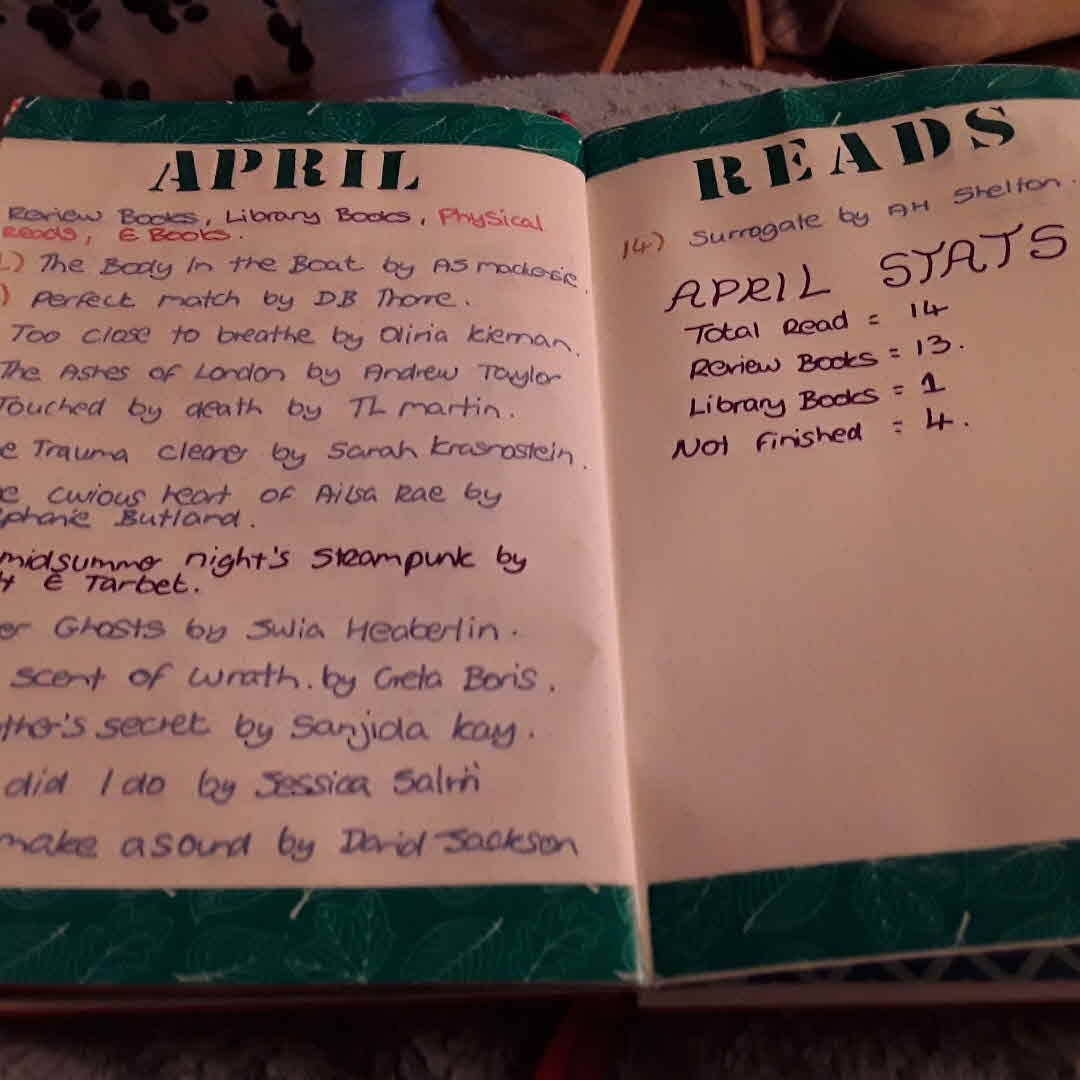 APRIL
Review Books, Library Books, Physical
Reads, E Books.
1) The Body In the Boat by AS mackenzie.
) Perfect match by DB Thorne.
Too close to breathe by Olivia Kiernan.
The Ashes of London by Andrew Taylor
Touched by death by TL martin.
e Trauma cleaner by Sarah Krasnostein.
e curious heart of Ailsa Rae by
ephanie Butland.
midsummer night's Steampunk by
E Tarbet.
er Ghosts by Julia Heaberlin.
scent of wrath. by Greta Boris.
other's secret by Sanjida kay.
did I do by Jessica
make a sound by David Jackson
READS
14) Surrogate by AH Shelton.
APRIL STATS
Total Read = 14
Review Books = 13.
Library Books = 1
Not Finished = 4.